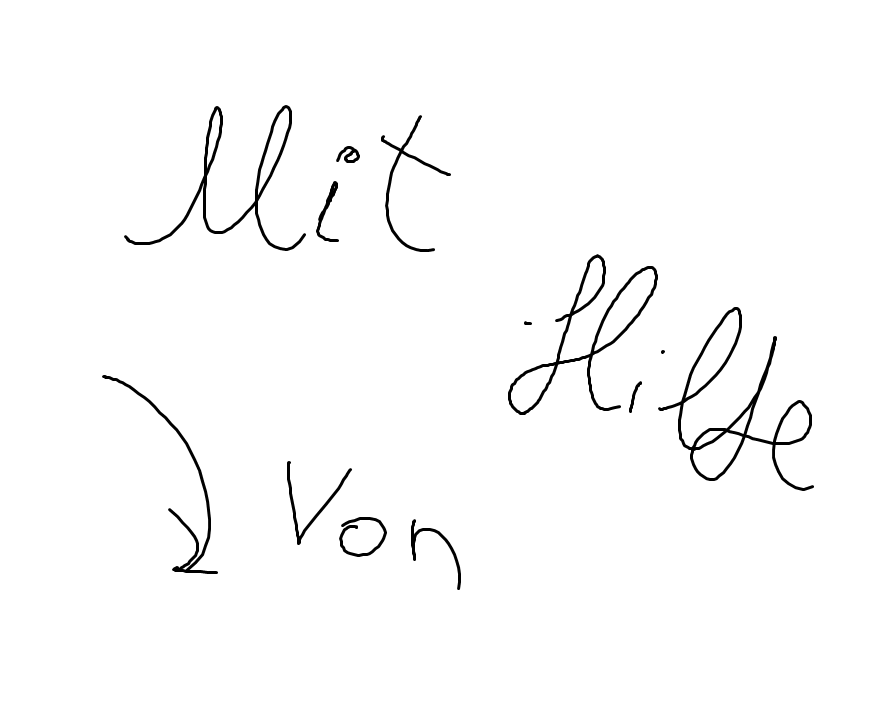 Mit
Hilfe
Von